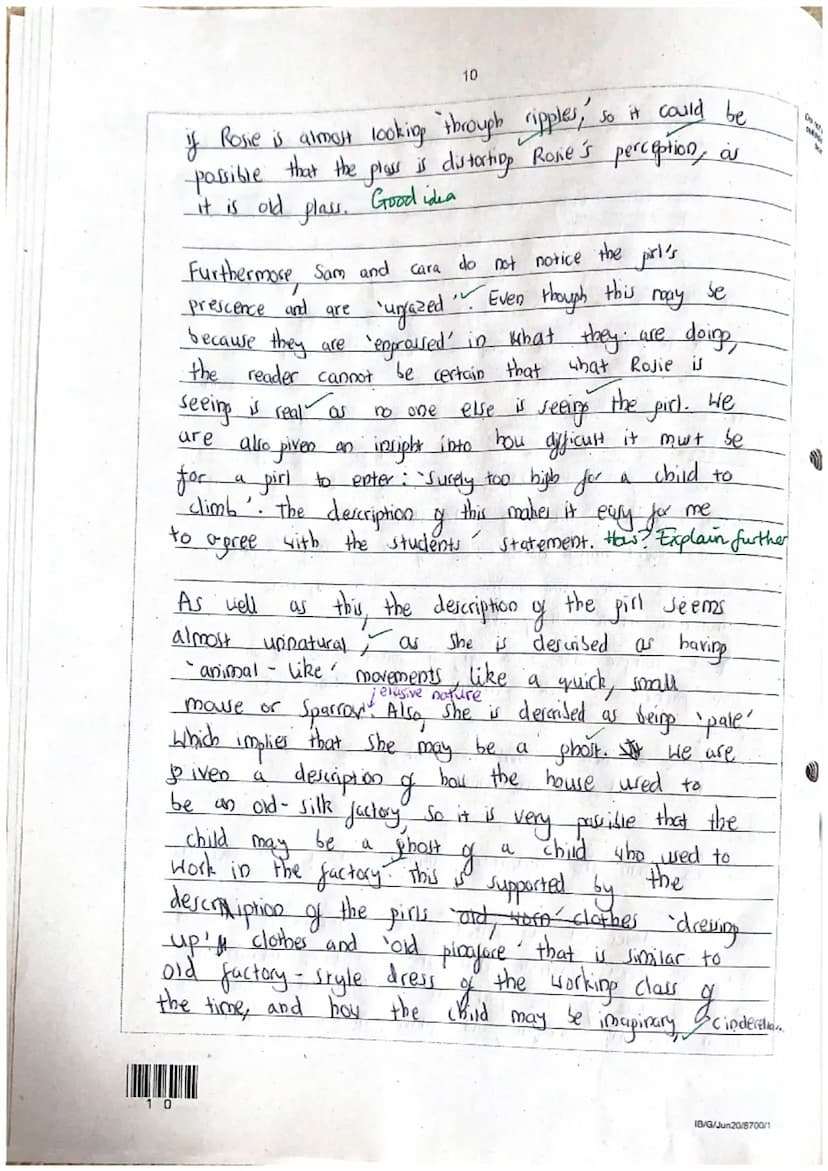 10
if Rosie is almost looking 'through ripples,' so it could be
possible that the glass is distorting Rosie's perception, as
it is old glass. Good idea
Furthermore, Sam and Cara do not notice the girl's
prescence and are 'unfazed'. Even though this may be
because they are 'engrossed' in what they are doing,
the reader cannot be certain that what Rosie is
seeing is real as no one else is seeing the girl. We
are also given an insight into how difficult it must be
for a girl to enter: 'Surely too high for a child to
climb'. The description of this makes it easy for me
to agree with the students' statement. How? Explain further
As well as this, the description of the girl seems
almost unnatural, as she is described as having
'animal-like' movements, like a quick, small
elusive nature
mouse or sparrow. Also, she is described as being 'pale'
which implies that she may be a ghost. We are
given a description of how the house used to
be an old-silk factory, so it is very possible that the
child may be a ghost of a child who used to
work in the factory. This is supported by the
description of the girls 'old, worn' clothes 'dressing
up' clothes and 'old pinafore' that is similar to
old factory-style dress of the working class of
the time, and how the child may be imaginary, Cinderella..
1 0
IB/G/Jun20/8700/1